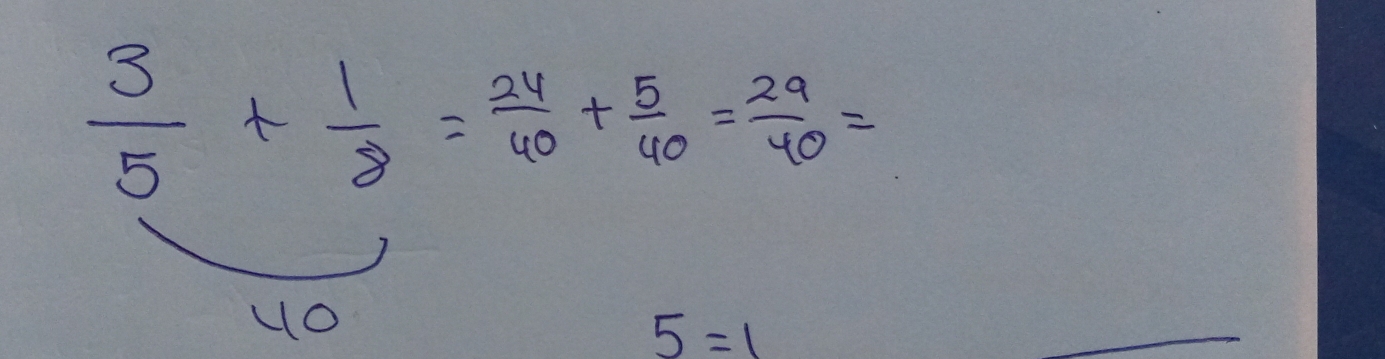 3/5 + 1/8 = 24/40 + 5/40 = 29/40 =
40
5 = 1